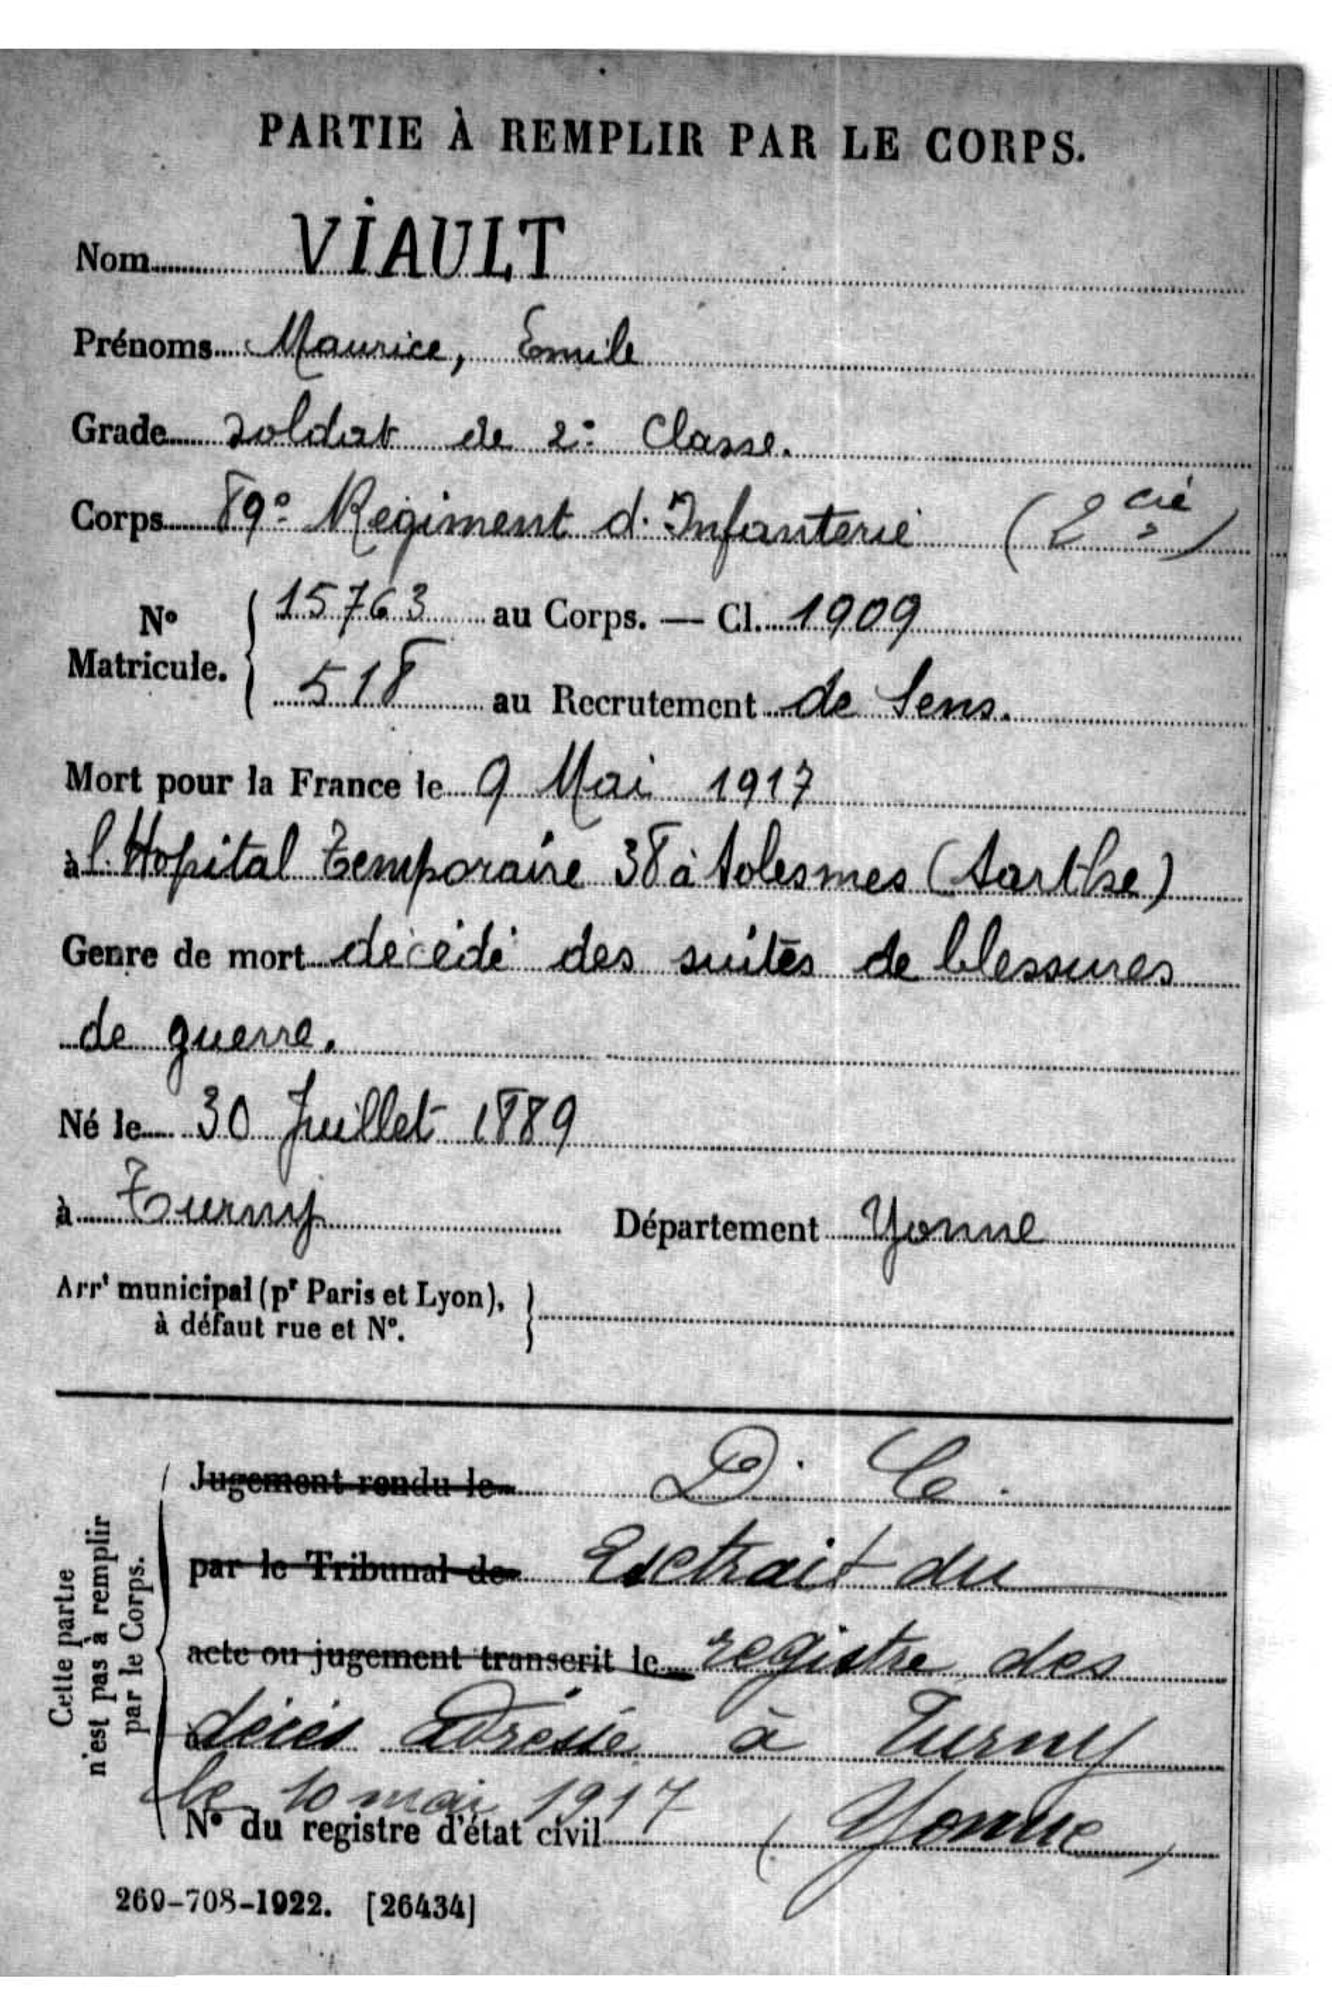 PARTIE À REMPLIR PAR LE CORPS.
Nom VIAULT
Prénoms Maurice, Emile
Grade Soldat de 2e Classe.
Corps 89e Régiment d'Infanterie (2 cie)
No Matricule. 15763 au Corps. — Cl. 1909
518 au Recrutement de Sens.
Mort pour la France le 9 Mai 1917
à l'Hopital temporaire 38 à Solesmes (Sarthe)
Genre de mort décédé des suites de blessures
de guerre.
Né le 30 Juillet 1889
à Turny Département Yonne
Arrt municipal (pr Paris et Lyon),
à défaut rue et No.
Cette partie
n'est pas à remplir
par le Corps.
Jugement rendu le D. C.
par le Tribunal de Extrait du
acte ou jugement transcrit le registre des
à décès adressé à Turny
le 10 mai 1917
No du registre d'état civil (Yonne)
269-708-1922. [26434]